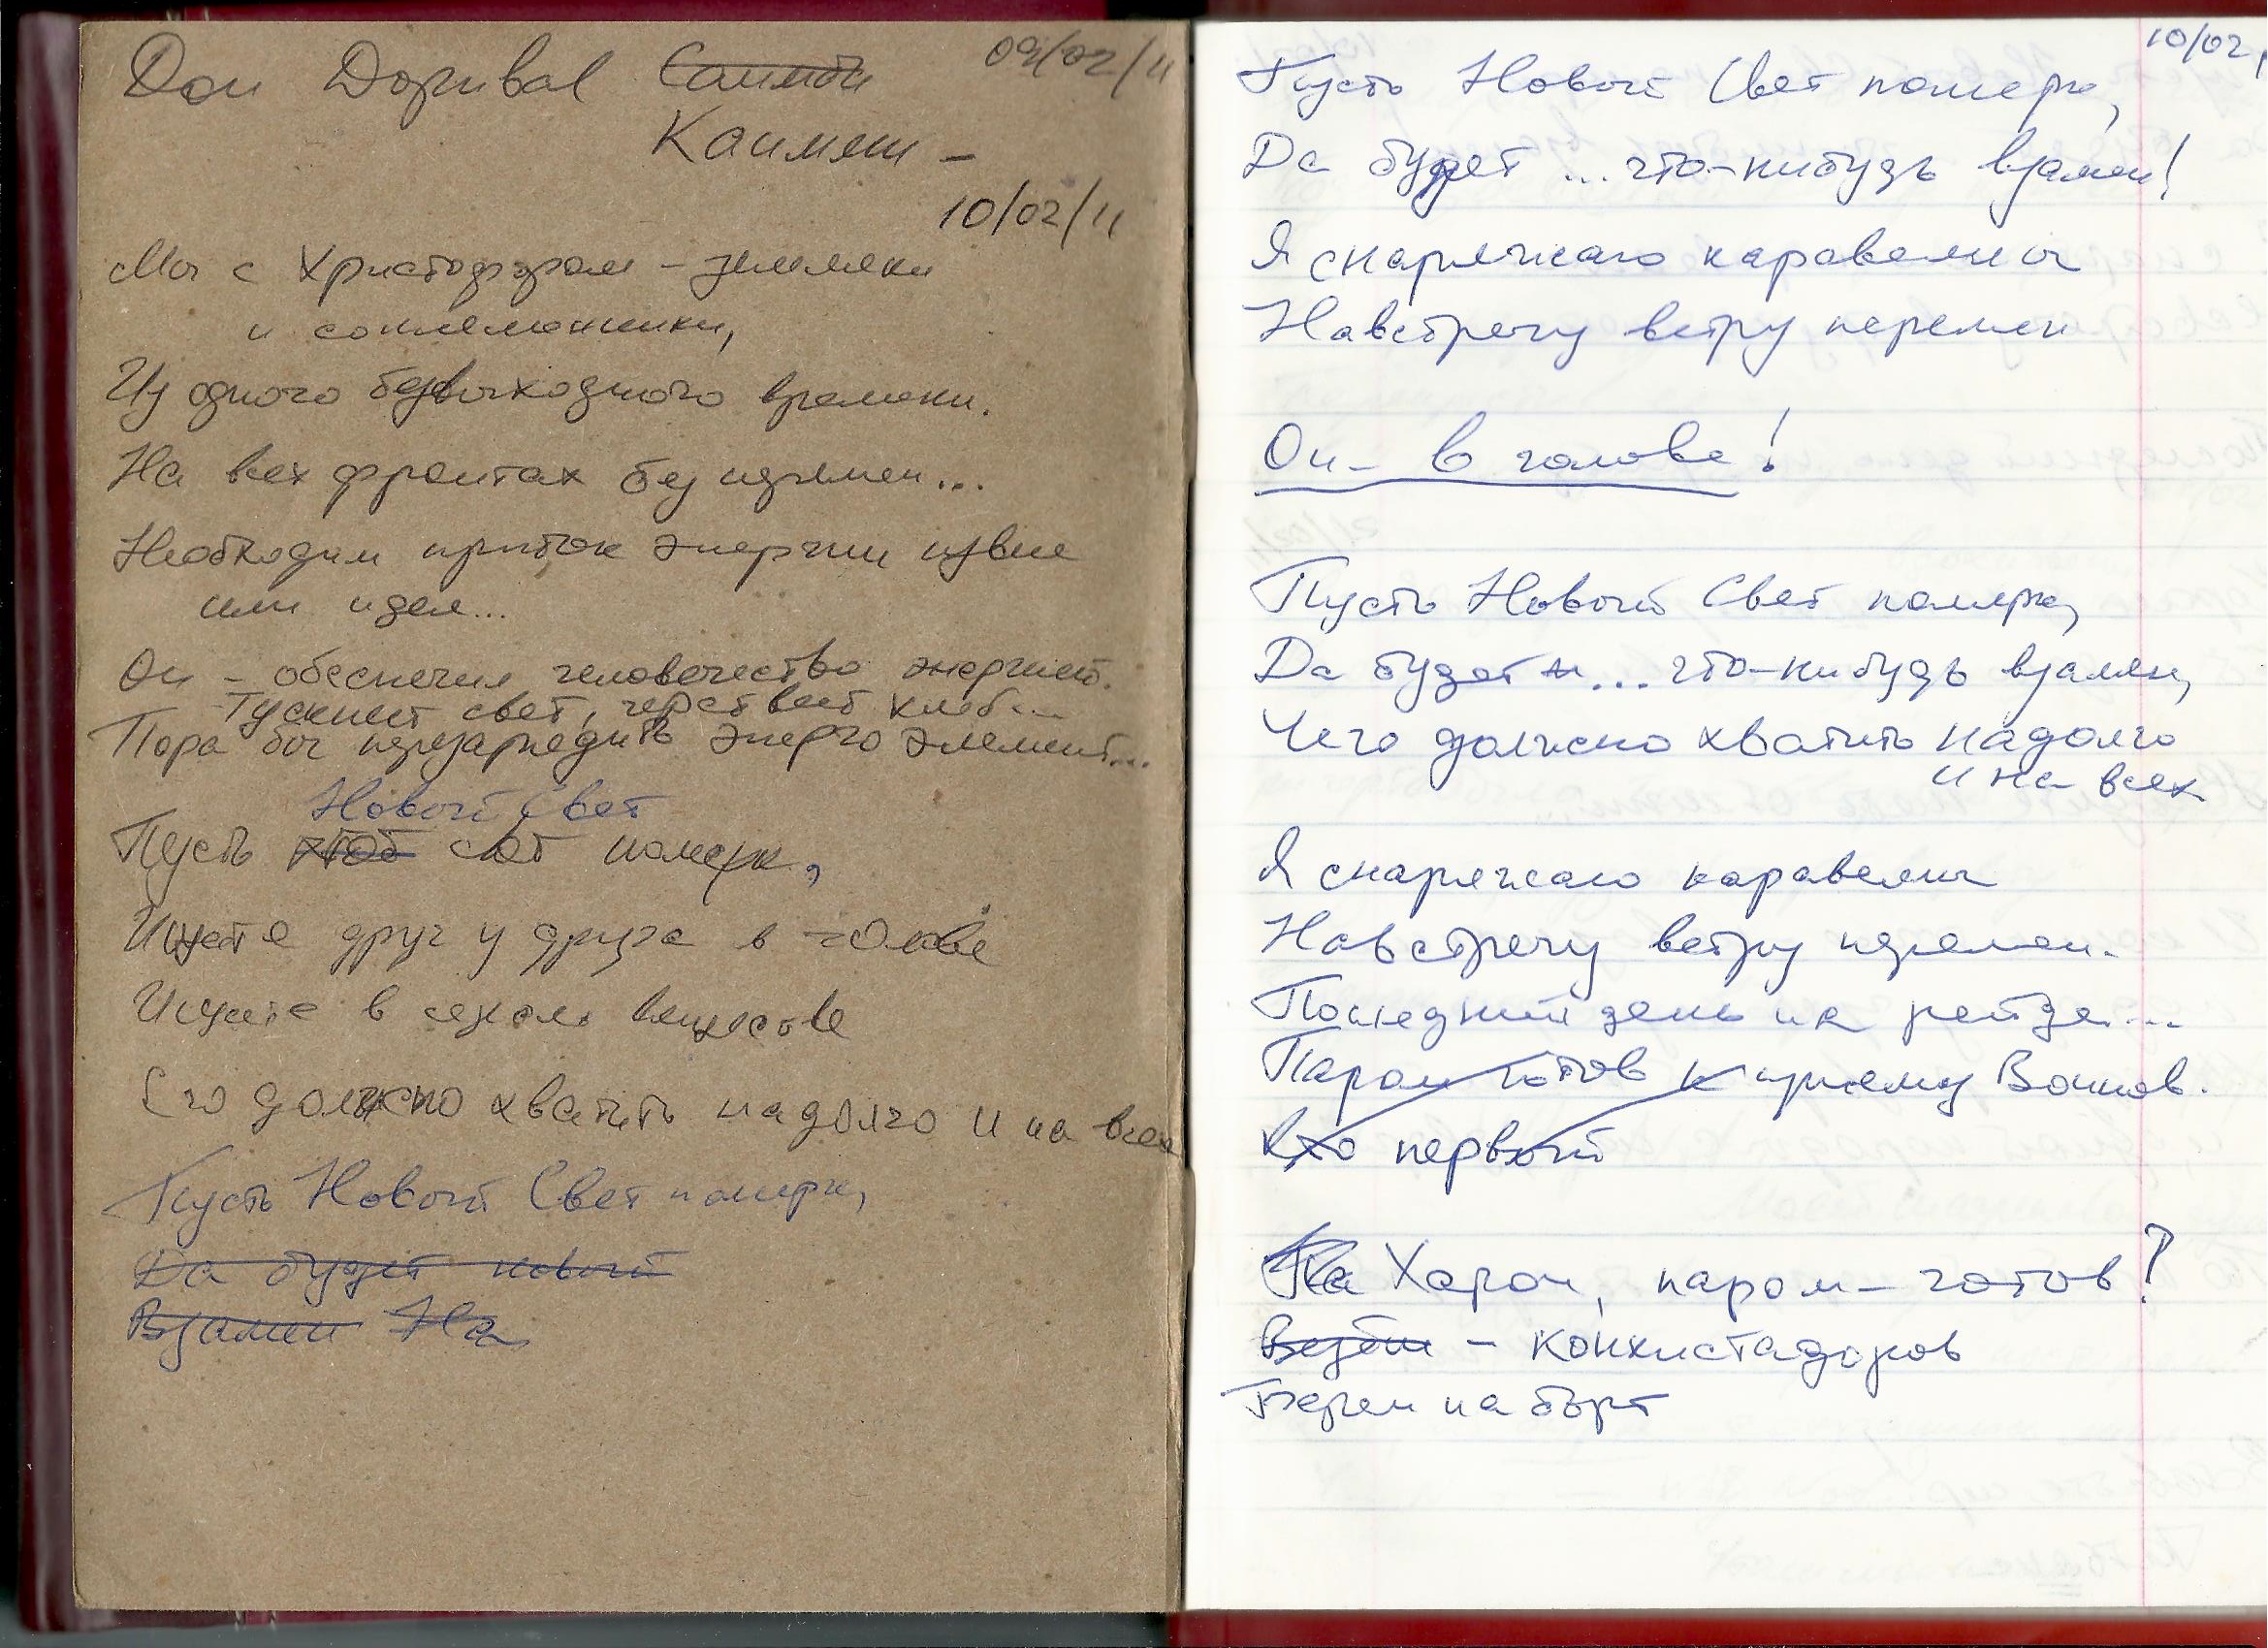 09/02/11
Дон Доривал Саимби
Каимми -
10/02/11
Мы с Христофором - земляки
и соплеменники,
Из одного безвыходного времени.
На всех фронтах без перемен...
Необходим приток энергии извне
или идея...
Он - обеспечил человечество энергией.
Тускнеет свет, черствеет хлеб...
Пора бы перезарядить энерго элемент...
Новый Свет
Пусть этот свет померк,
Ищите друг у друга в голове
Ищите в сером веществе
Его должно хватить надолго и на всех
Пусть Новый Свет померк,
Да будет новый
Взамен На
10/02/
Пусть Новый Свет померк,
Да будет ... что-нибудь взамен!
Я снаряжаю каравеллы
Навстречу ветру перемен
Он - в голове!
Пусть Новый Свет померк,
Да будет ... что-нибудь взамен,
Чего должно хватить надолго
и на всех
Я снаряжаю каравеллы
Навстречу ветру перемен.
Последний день на рейде...
Паром готов к приему Воинов.
Кто первый
На Харон, паром - готов?
- конкистадоров
Берем на борт